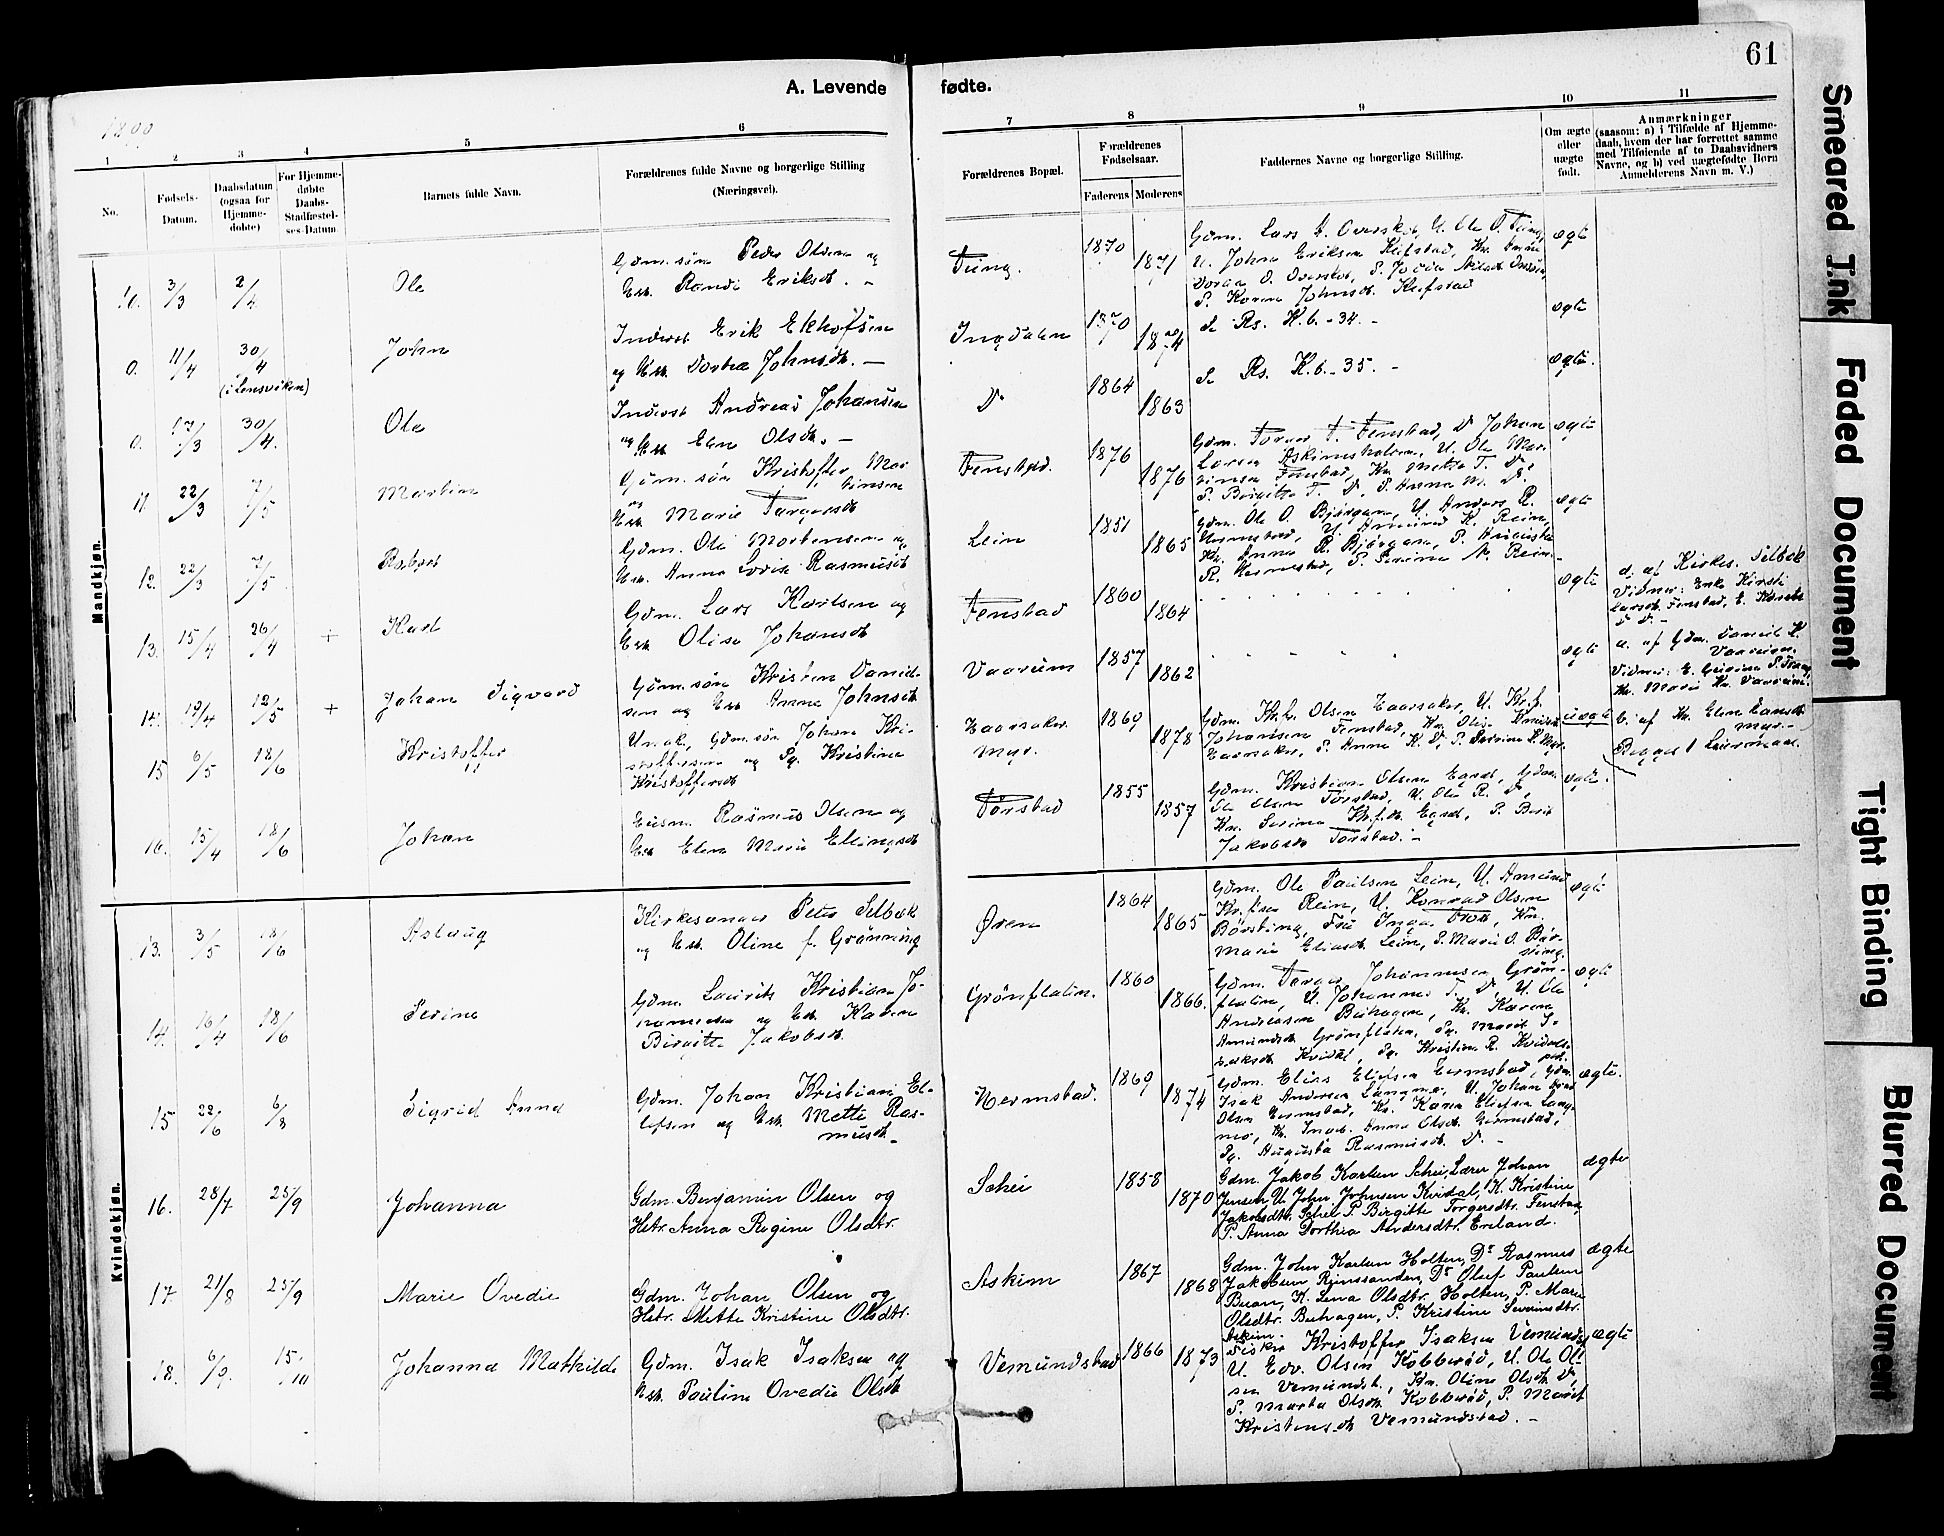 61
A. Levende fødte.
1899
1 2 3 4 5 6 7 8 9 10 11
No.
Fødsels-Datum.
Daabsdatum (ogsaa for Hjemmedøbte)
For Hjemmedøbte Daabs-Stadfæstelses-Datum
Barnets fulde Navn.
Forældrenes fulde Navne og borgerlige Stilling
(Næringsvei).
Forældrenes Bopæl.
Forældrenes Fødselsaar.
Faderens Moderens
Faddernes Navne og borgerlige Stilling.
Om ægte eller uægte født.
Anmærkninger
(saasom: a) i Tilfælde af Hjemmedaab, hvem der har forrettet samme med Tilføiende af to Daabsvidners Navne, og b) ved uægtefødte Børn Anmelderens Navn m. V.)
Mandkjøn.
10. 3/3 2/4 Ole
Gdm.søn Peder Olsen og
Esk. Randi Eriksdt. —
Tung. 1870 1871
Gdm. Lars O. Overskot, U. Ole O. Tung,
U. Johan Eriksen Klefstad, Kn.
P. Karen Johnsdt. Klefstad
ægte
0. 11/4 30/4 (i Lensviken) John
Inderst Erik
og Esk. Dorthea Johnsdt. —
Ingdalen 1870 1874
Se Rs. K.b. - 34. -
ægte
0. 17/3 30/4. Ole
Inderst Andreas Johansen
og Esk. Elen Olsdt. —
Do 1864 1863
Se Rs. K.b. - 35. -
ægte.
11. 22/3 7/5 Martin
Gdm.søn Kristoffer Mortinsen
og Esk. Marie Torgersdt
Fenstad. 1876 1876
Gdm. Torger T. Fenstad, Do Johan
Larsen Askimsholmen, U. Ole Mar-
tinsen Fenstad, Kn Mette T. Do,
P. Birgitte T. Do, P. Anna M. Do.
ægte
12. 22/3 7/5 Robert
Gdm. Ole Mortensen og
Esk. Anna Lovise Rasmusdt
Lein 1851 1865
Gdm. Ole O. Bjørgan, U. Anders R.
Hermstad, U. Amund K. Rein,
Kn. Anna R. Bjørgan, P. Augusta
R. Hermstad, P. Serine N. Rein -
ægte
13. 15/4 26/4 + Karl
Gdm. Lars Karlsen og
Esk. Olise Johansdt
Fenstad 1860 1864
ægte
d. af Kirkes. Selbæk
Vidner: Enke Kirsti
Larsdt. Fenstad, E.
Do Do -
14. 19/4 12/5 + Johan Sigvard
Gdm.søn Kristen Daniel-
sen og Esk Anna Johnsdt
Vaarum 1857 1862
ægte
a. af Gdm. Daniel K.
Vaarum.
Vidner: E.
Kn. Marie Kr. Vaarum.
15 6/5 18/6 Kristoffer
Un.ak, Gdm.søn Johan Kri-
stoffersen og Pg. Kristine
Kristoffersdt
Haarsaker
Myr. 1869 1878
Gdm. Kr.f. Olsen Haarsaker, U. Kr.f.
Johansen Fenstad, Kn Olise Knudsdt
Haarsaker, P. Anna K. Do, P. Serine K. Myr.
uægte
b. af Kn. Elen Hansdt
Myr. -
Begges 1 Leiermaal.
16. 15/4 18/6 Johan
Husm. Rasmus Olsen og
Esk Elen Marie Ellingsdt
Tørstad 1855 1857
Gdm. Kristian Olsen Egset, Gdm.
Ole Olsen Tørstad, U. Ole R. Do,
Kn. Serine Kr.f.dt. Egset, P. Berit
Jakobsdt Tørstad. -
ægte.
Kvindekjøn.
13. 3/5 18/6 Aslaug
Kirkesanger Peter Selbæk
og Esk. Oline f. Grønning
Øren 1864 1865
Gdm. Ole Paulsen Lein, U. Amund
Kr.fsen Rein, U. Konrad Olsen
Børsting, Fru Inga, Kn.
Marie Eliasdt. Lein, P. Marie O. Bør-
sting.
ægte
14. 16/4 18/6 Serine
Gdm. Laurits Kristian Jo-
hannesen og Esk Karen
Birgitte Jakobsdt.
Grønflaten. 1860 1866.
Gdm. Torger Johannesen Grøn-
flaten, U. Johannes T. Do U. Ole
Andreasen Buhagen, Kn. Karen
Amundsdt Grønflaten, Pg. Marit I-
saksdt Kvidal, Pg. Kristine R. Kvidals-
pl.
ægte
15 22/6 6/8 Sigrid Anna
Gdm. Johan Kristian El-
lefsen og Esk. Mette Ras-
musdt. -
Hermstad. 1869 1874
Gdm. Elias Elefsen Hermstad, Gdm
Isak Andersen Langmo, U. Johan
Olsen Hermstad, Kn. Karen Elefsen Lang-
mo, Kn. Ingeb. Anna Olsdt Hermstad,
Pg. Augusta Rasmusdt. Do. -
ægte.
16. 28/7 25/9 Johanna
Gdm. Benjamin Olsen og
Hstr. Anna Regine Olsdtr.
Schei 1858 1870
Gdm. Jakob Karlsen Schei, Lærer Johan
Jensen U. John Johnsen Kvidal, K. Kristine
Jakobsdtr. Schei P. Birgitte Torgersdtr. Fenstad
P. Anna Dorthea Andersdtr. Eveland.
ægte
17. 21/8 25/9 Marie Ovedie
Gdm. Johan Olsen og
Hstr. Mette Kristine Olsdtr.
Askim 1867 1868
Gdm. John Karlsen Holten, Do Rasmus
Jakobsen Reinssanden, Do Oluf Paulsen
Buan, K. Lena Olsdtr. Holten, P. Marie
Olsdtr. Buhagen, P. Kristine Severinsdtr.
Askim.
ægte
18. 6/9. 15/10 Johanna Mathilde
Gdm. Isak Isaksen og
Esk. Pauline Ovedie Olsdt
Vemundstad 1866 1873
Fisker Kristoffer Isaksen Vemundst.
U. Edv. Olsen Kobberød, U. Ole Ol-
sen Vemundst., Kn. Oline Olsdt. Do,
P. Marta Olsdt. Kobberød, P. Marit
Kristensdt Vemundstad. -
ægte
Smeared Ink
Faded Document
Tight Binding
Blurred Document